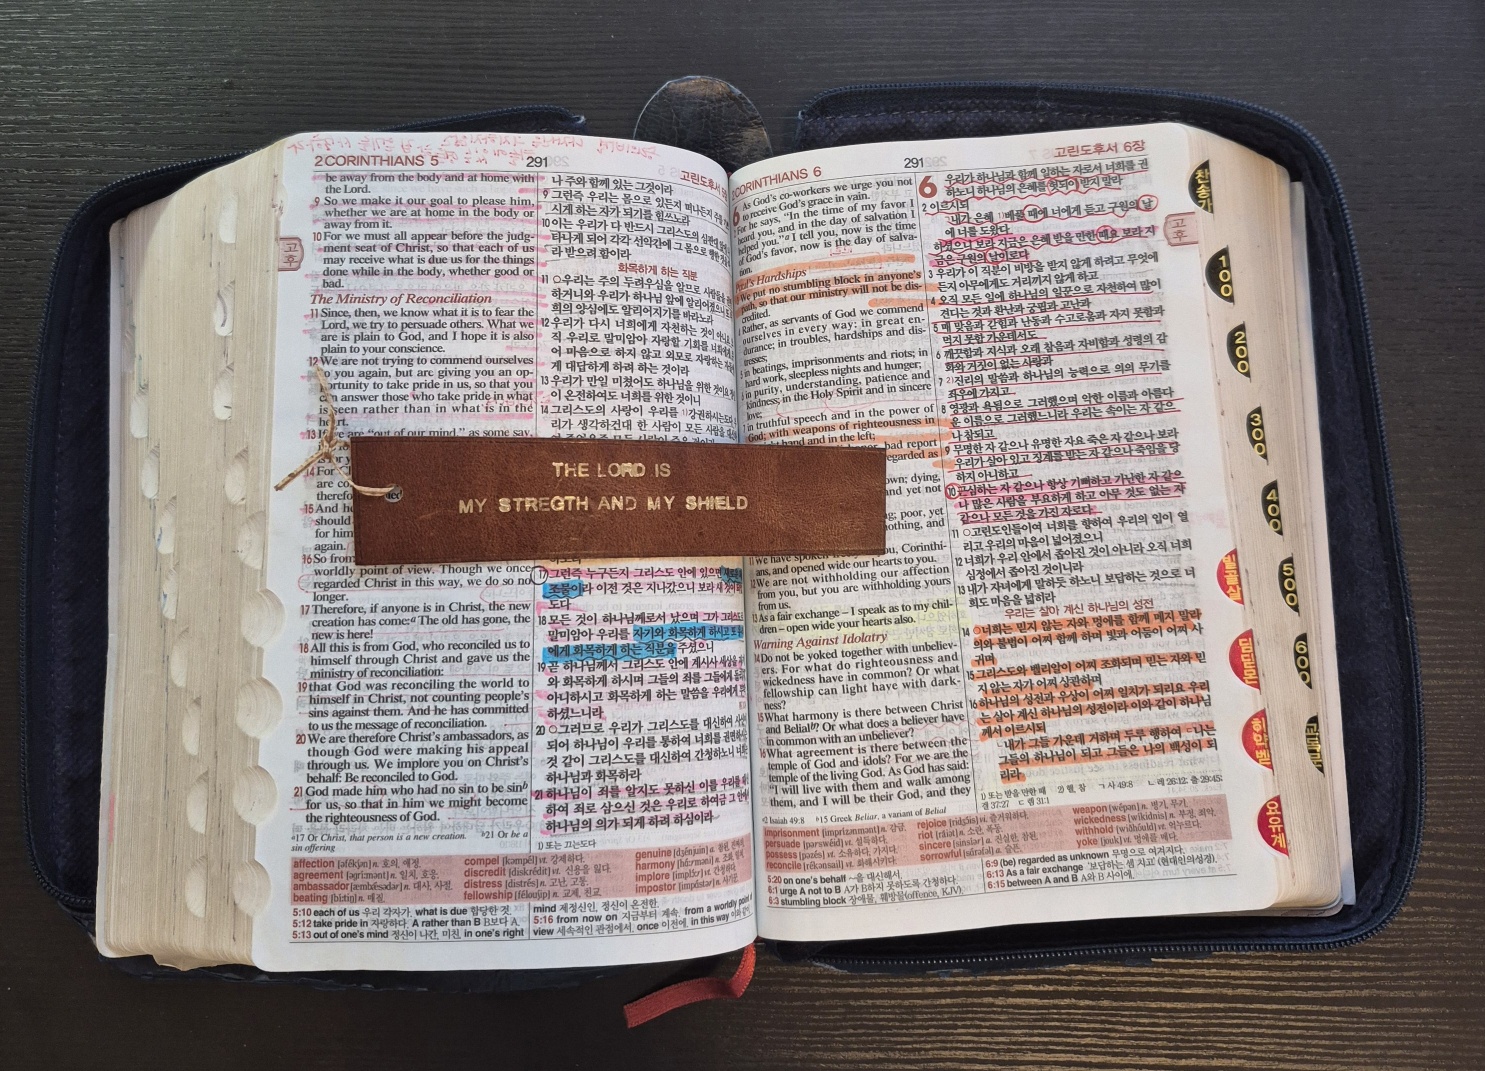 2 CORINTHIANS 5
291
be away from the body and at home with
the Lord.
9 So we make it our goal to please him,
whether we are at home in the body or
away from it.
10 For we must all appear before the judg-
ment seat of Christ, so that each of us
may receive what is due us for the things
done while in the body, whether good or
bad.
The Ministry of Reconciliation
11 Since, then, we know what it is to fear the
Lord, we try to persuade others. What we
are is plain to God, and I hope it is also
plain to your conscience.
12 We are not trying to commend ourselves
to you again, but are giving you an op-
portunity to take pride in us, so that you
can answer those who take pride in what
is seen rather than in what is in the
heart.
13 If we are "out of our mind," as some say,
14 For
15 And
should
for him
again.
16 So from
worldly point of view. Though we once
regarded Christ in this way, we do so no
longer.
17 Therefore, if anyone is in Christ, the new
creation has come:a The old has gone, the
new is here!
18 All this is from God, who reconciled us to
himself through Christ and gave us the
ministry of reconciliation:
19 that God was reconciling the world to
himself in Christ, not counting people's
sins against them. And he has committed
to us the message of reconciliation.
20 We are therefore Christ's ambassadors, as
though God were making his appeal
through us. We implore you on Christ's
behalf: Be reconciled to God.
21 God made him who had no sin to be sinb
for us, so that in him we might become
the righteousness of God.
a17 Or Christ, that person is a new creation. b21 Or be a
sin offering
나 주와 함께 있는 그것이라
9 그런즉 우리는 몸으로 있든지 떠나든지
시게 하는 자가 되기를 힘쓰노라
10 이는 우리가 다 반드시 그리스도의 심판대
타나게 되어 각각 선악간에 그 몸으로 행한
라 받으려 함이라
화목하게 하는 직분
11 우리는 주의 두려우심을 알므로 사람들을
하거니와 우리가 하나님 앞에 알리어졌으니
희의 양심에도 알리어지기를 바라노라
12 우리가 다시 너희에게 자천하는 것이 아니요
직 우리로 말미암아 자랑할 기회를 너희에게
어 마음으로 하지 않고 외모로 자랑하는
게 대답하게 하려 하는 것이라
13 우리가 만일 미쳤어도 하나님을 위한 것이요
이 온전하여도 너희를 위한 것이니
14 그리스도의 사랑이 우리를 1)강권하시는도다
리가 생각하건대 한 사람이 모든 사람을
THE LORD IS
MY STREGTH AND MY SHIELD
17 그런즉 누구든지 그리스도 안에 있으면
조물이라 이전 것은 지나갔으니 보라 새 것이
도다
18 모든 것이 하나님께로서 났으며 그가 그리스도
말미암아 우리를 자기와 화목하게 하시고 또
에게 화목하게 하는 직분을 주셨으니
19 곧 하나님께서 그리스도 안에 계시사 세상을
와 화목하게 하시며 그들의 죄를 그들에게
아니하시고 화목하게 하는 말씀을 우리에게
하셨느니라
20 그러므로 우리가 그리스도를 대신하여
되어 하나님이 우리를 통하여 너희를 권면하시는
것 같이 그리스도를 대신하여 간청하노니
하나님과 화목하라
21 하나님이 죄를 알지도 못하신 이를 우리를
하여 죄로 삼으신 것은 우리로 하여금 그 안에서
하나님의 의가 되게 하려 하심이라
1) 또는 끄는도다
고후
affection n. 호의, 애정.
agreement n. 일치, 호응.
ambassador n. 대사, 사절.
beating n. 매질.
compel vt. 강제하다.
discredit vt. 신용을 잃다.
distress n. 고난, 고통.
fellowship n. 교제, 친교
genuine
harmony
implore
impostor
5:10 each of us 우리 각자가. what is due 합당한 것.
5:12 take pride in 자랑하다. A rather than B B보다 A.
5:13 out of one's mind 정신이 나간, 미친. in one's right
mind 제정신인, 정신이 온전한.
5:16 from now on 지금부터 계속. from a worldly point of
view 세속적인 관점에서. once 이전에. in this way
2 CORINTHIANS 6
291
고린도후서 6장
6 As God's co-workers we urge you not
to receive God's grace in vain.
For he says, "In the time of my favor I
heard you, and in the day of salvation I
helped you."a I tell you, now is the time
of God's favor, now is the day of salva-
tion.
Paul's Hardships
We put no stumbling block in anyone's
path, so that our ministry will not be dis-
credited.
Rather, as servants of God we commend
ourselves in every way: in great en-
durance; in troubles, hardships and dis-
tresses;
in beatings, imprisonments and riots; in
hard work, sleepless nights and hunger;
in purity, understanding, patience and
kindness; in the Holy Spirit and in sincere
love;
in truthful speech and in the power of
God; with weapons of righteousness in
hand and in the left;
bad report
regarded as
dying,
and yet not
poor, yet
nothing, and
We have spoken Corinthi-
ans, and opened wide our hearts to you.
12 We are not withholding our affection
from you, but you are withholding yours
from us.
13 As a fair exchange – I speak as to my chil-
dren – open wide your hearts also.
Warning Against Idolatry
14 Do not be yoked together with unbeliev-
ers. For what do righteousness and
wickedness have in common? Or what
fellowship can light have with dark-
ness?
15 What harmony is there between Christ
and Belialb? Or what does a believer have
in common with an unbeliever?
16 What agreement is there between the
temple of God and idols? For we are the
temple of the living God. As God has said:
"I will live with them and walk among
them, and I will be their God, and they
a2 Isaiah 49:8 b15 Greek Beliar, a variant of Belial
6 우리가 하나님과 함께 일하는 자로서 너희를 권
하노니 하나님의 은혜를 헛되이 받지 말라
2 이르시되
내가 은혜 1)베풀 때에 너에게 듣고 구원의 날
에 너를 도왔다
하셨으니 보라 지금은 은혜 받을 만한 때요 보라 지
금은 구원의 날이로다
3 우리가 이 직분이 비방을 받지 않게 하려고 무엇에
든지 아무에게도 거리끼지 않게 하고
4 오직 모든 일에 하나님의 일꾼으로 자천하여 많이
견디는 것과 환난과 궁핍과 고난과
5 매 맞음과 갇힘과 난동과 수고로움과 자지 못함과
먹지 못함 가운데서도
6 깨끗함과 지식과 오래 참음과 자비함과 성령의 감
화와 거짓이 없는 사랑과
7 2)진리의 말씀과 하나님의 능력으로 의의 무기를
좌우에 가지고
8 영광과 욕됨으로 그러했으며 악한 이름과 아름다
운 이름으로 그러했느니라 우리는 속이는 자 같으
나 참되고
9 무명한 자 같으나 유명한 자요 죽은 자 같으나 보라
우리가 살아 있고 징계를 받는 자 같으나 죽임을 당
하지 아니하고
10 근심하는 자 같으나 항상 기뻐하고 가난한 자 같으
나 많은 사람을 부요하게 하고 아무 것도 없는 자
같으나 모든 것을 가진 자로다
11 고린도인들이여 너희를 향하여 우리의 입이 열
리고 우리의 마음이 넓어졌으니
12 너희가 우리 안에서 좁아진 것이 아니라 오직 너희
심정에서 좁아진 것이니라
13 내가 자녀에게 말하듯 하노니 보답하는 것으로 너
희도 마음을 넓히라
우리는 살아 계신 하나님의 성전
14 너희는 믿지 않는 자와 멍에를 함께 메지 말라
의와 불법이 어찌 함께 하며 빛과 어둠이 어찌 사
귀며
15 그리스도와 벨리알이 어찌 조화되며 믿는 자와 믿
지 않는 자가 어찌 상관하며
16 하나님의 성전과 우상이 어찌 일치가 되리요 우리
는 살아 계신 하나님의 성전이라 이와 같이 하나님
께서 이르시되
내가 그들 가운데 거하며 두루 행하여 나는
그들의 하나님이 되고 그들은 나의 백성이 되
리라
1) 또는 받을 만한 때 2) 헬, 참 ㄱ 사 49:8 ㄴ 레 26:12; 출 29:45;
겔 37:27 ㄷ 렘 31:1
imprisonment n. 감금.
persuade vt. 설득하다.
possess vt. 소유하다, 가지다.
reconcile vt. 화해시키다.
rejoice vi. 즐거워하다.
riot n. 소란, 폭동.
sincere a. 진실한, 참된.
sorrowful a. 슬픈.
weapon n. 병기, 무기.
wickedness n. 부정, 죄악.
withhold vt. 억누르다.
yoke vt. 멍에를 메다.
5:20 on one's behalf ~을 대신해서.
6:1 urge A not to B A가 B하지 못하도록 간청하다.
6:3 stumbling block 장애물, 훼방물(offence, KJV).
6:9 (be) regarded as unknown 무명으로 여겨지다.
6:13 As a fair exchange 보답하는 셈 치고 (현대인의성경).
6:15 between A and B A와 B 사이에.
고후
찬송가
100
200
300
400
500
600
교독문
빌골살
딤딛몬
히약벧
요유계